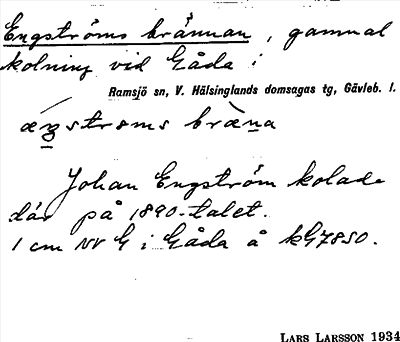 Engströms brännan, gammal
kolning vid Gåda i
Ramsjö sn, V. Hälsinglands domsagas tg, Gävleb. l.
æŋstrøms bræna
Johan Engström kolade
där på 1890-talet.
1 cm NV G i Gåda å kG7850.
LARS LARSSON 1934